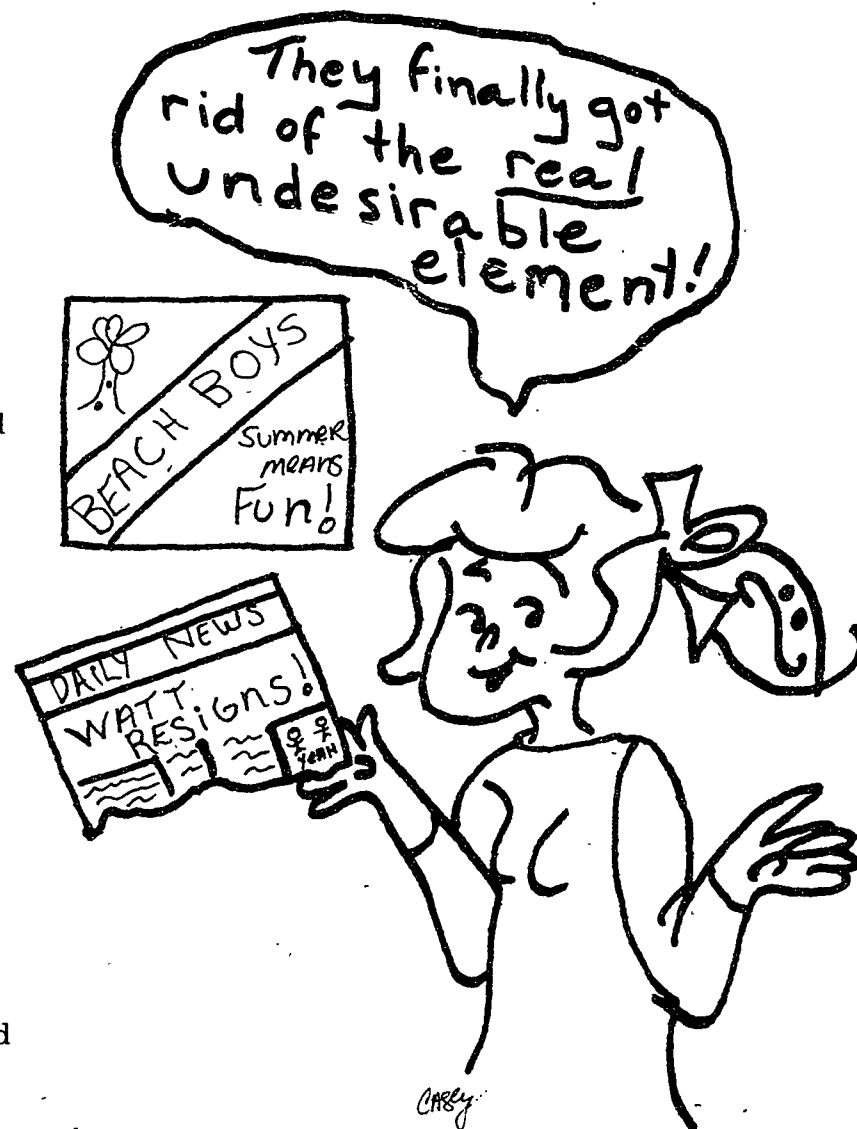 They finally got
rid of the real
undesirable
element!
BEACH BOYS
Summer
means
Fun!
DAILY NEWS
WATT
RESIGNS!
YEAH
Casey